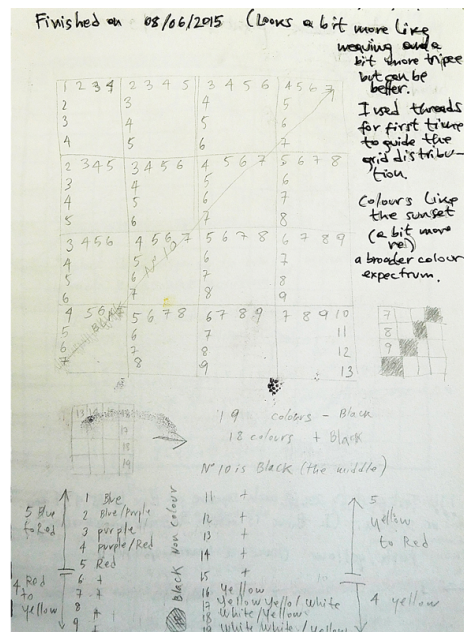 Finished on 08/06/2015 (Looks a bit more like
weaving and a
bit more
but can be
better.
I used threads
for first time
to guide the
grid distribu-
tion.
Colours like
the sunset
(a bit more
red)
a broader colour
expectrum.
1 2 3 4 2 3 4 5 3 4 5 6 4 5 6 7
2 3 4 5
3 4 5 6
4 5 6 7
2 3 4 5 3 4 5 6 4 5 6 7 5 6 7 8
3 4 5 6
4 5 6 7
5 6 7 8
3 4 5 6 4 5 6 7 5 6 7 8 6 7 8 9
4 5 6 7
5 6 7 8
6 7 8 9
Nº 10
4 5 6 7 5 6 7 8 6 7 8 9 7 8 9 10
5 6 7 11
6 7 8 12
7 8 9 13
BLACK
7
8
9
13
19
19 colours - Black
18 colours + Black
Nº 10 is Black (the middle)
5 Blue
to Red
4 Red
to
yellow
1 Blue
2 Blue/Purple
3 purple
4 purple/Red
5 Red
6 +
7 +
8 +
9 +
Black non colour
11 +
12 +
13 +
14 +
15 +
16 yellow
17 Yellow Yello/White
18 White/Yellow
19 White White/Yellow
5
yellow
to Red
4 yellow